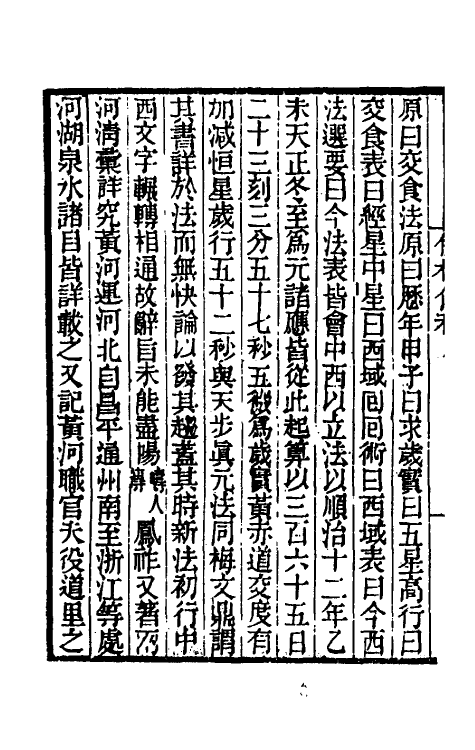 原曰交食法原曰歷年甲子曰求歲實曰五星高行曰
交食表曰經星中星曰西域回回術曰西域表曰今西
法選要曰今法表皆會中西以立法以順治十二年乙
未天正冬至爲元諸應皆從此起算以三百六十五日
二十三刻三分五十七秒五微爲歲實黃赤道交度有
加減恒星歲行五十二秒與天步眞元法同梅文鼎謂
其書詳於法而無快論以發其趣蓋其時新法初行中
西文字輾轉相通故辭旨未能盡暢疇人傳鳳祚又著兩
河清彙詳究黃河運河北自昌平通州南至浙江等處
河湖泉水諸目皆詳載之又記黃河職官夫役道里之